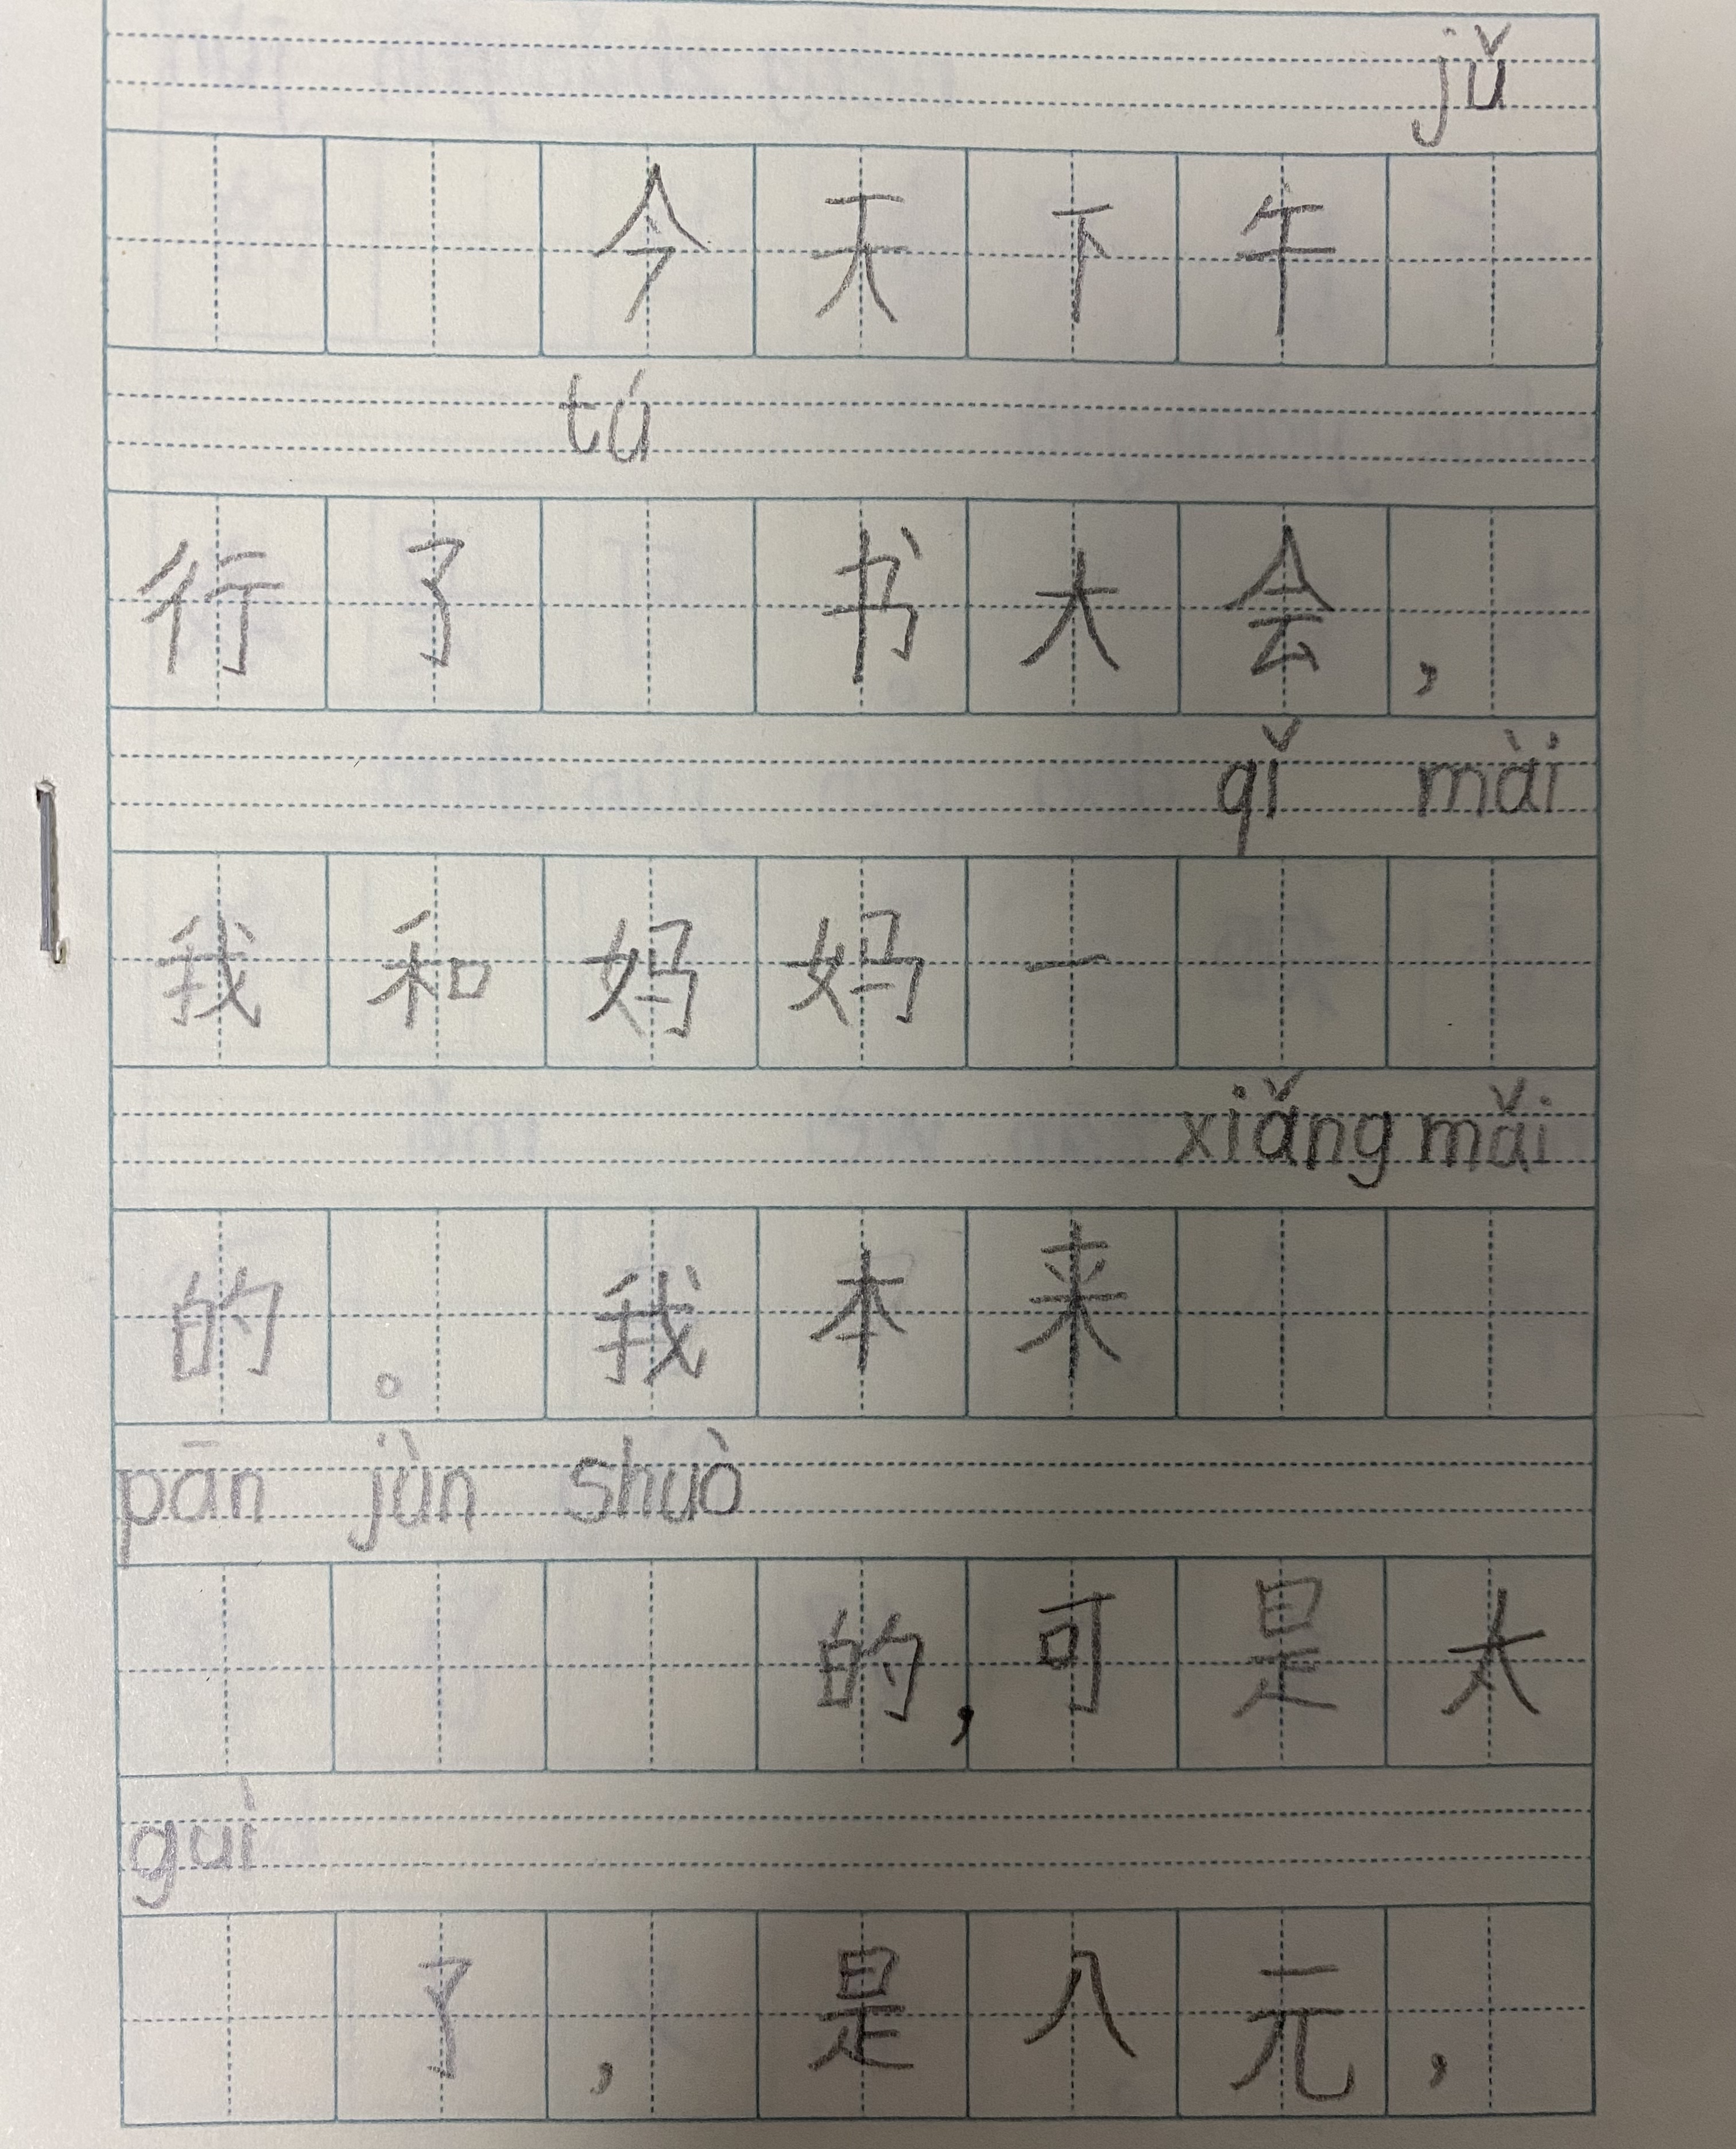 jǔ
今天下午
tú
行了书大会，
qǐ mài
我和妈妈一
xiǎng mǎi
的。我本来
pān jùn shuò
的，可是太
guì
了，是八元，